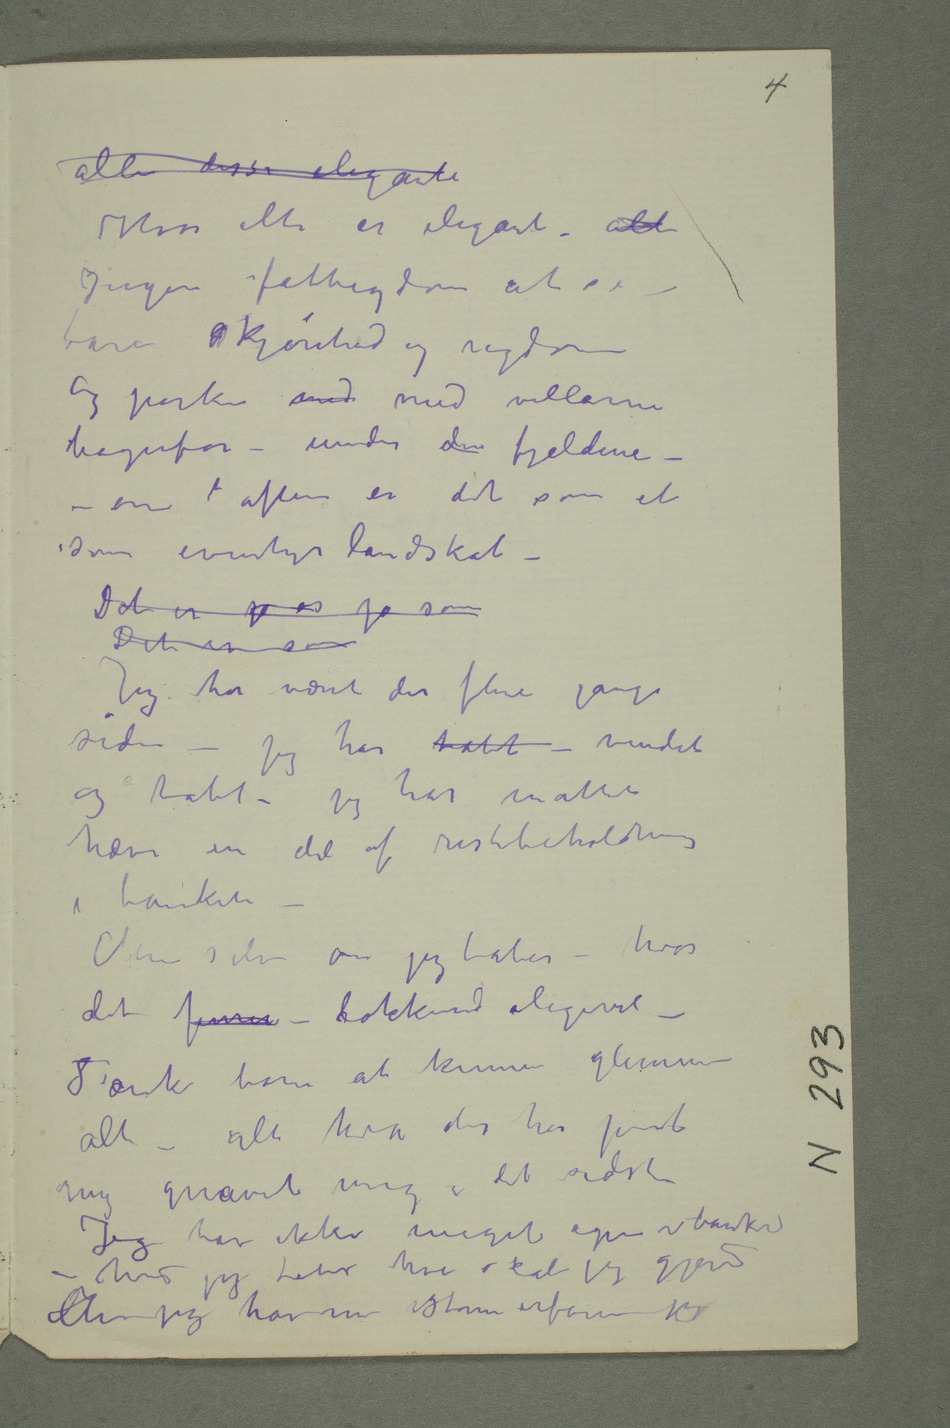 4
alle disse elegante
Hvor alt er elegant – alt
Ingen fattigdom at se –
bare skjønhed og rigdom
Og parken med med villaerne
bagenfor – under den fjeldene –
– om aften er det som et
som eventyrlandskab –
Det er ja som
Det er som
Jeg har været der flere gange
siden – jeg har tabt – vundet
og tabt – jeg har måttet
hæve en del af restbeholdning
i banken –
Men selv om jeg taber – hvor
det – lokkende aligevel –
Tænk bare at kunne glemme
alt – alt hva der har pint
mig gnavet mig i det sidste
Jeg har ikke meget igjen i banken
– hvis jeg taber hva skal jeg gjøre
Men jeg har nu
N 293